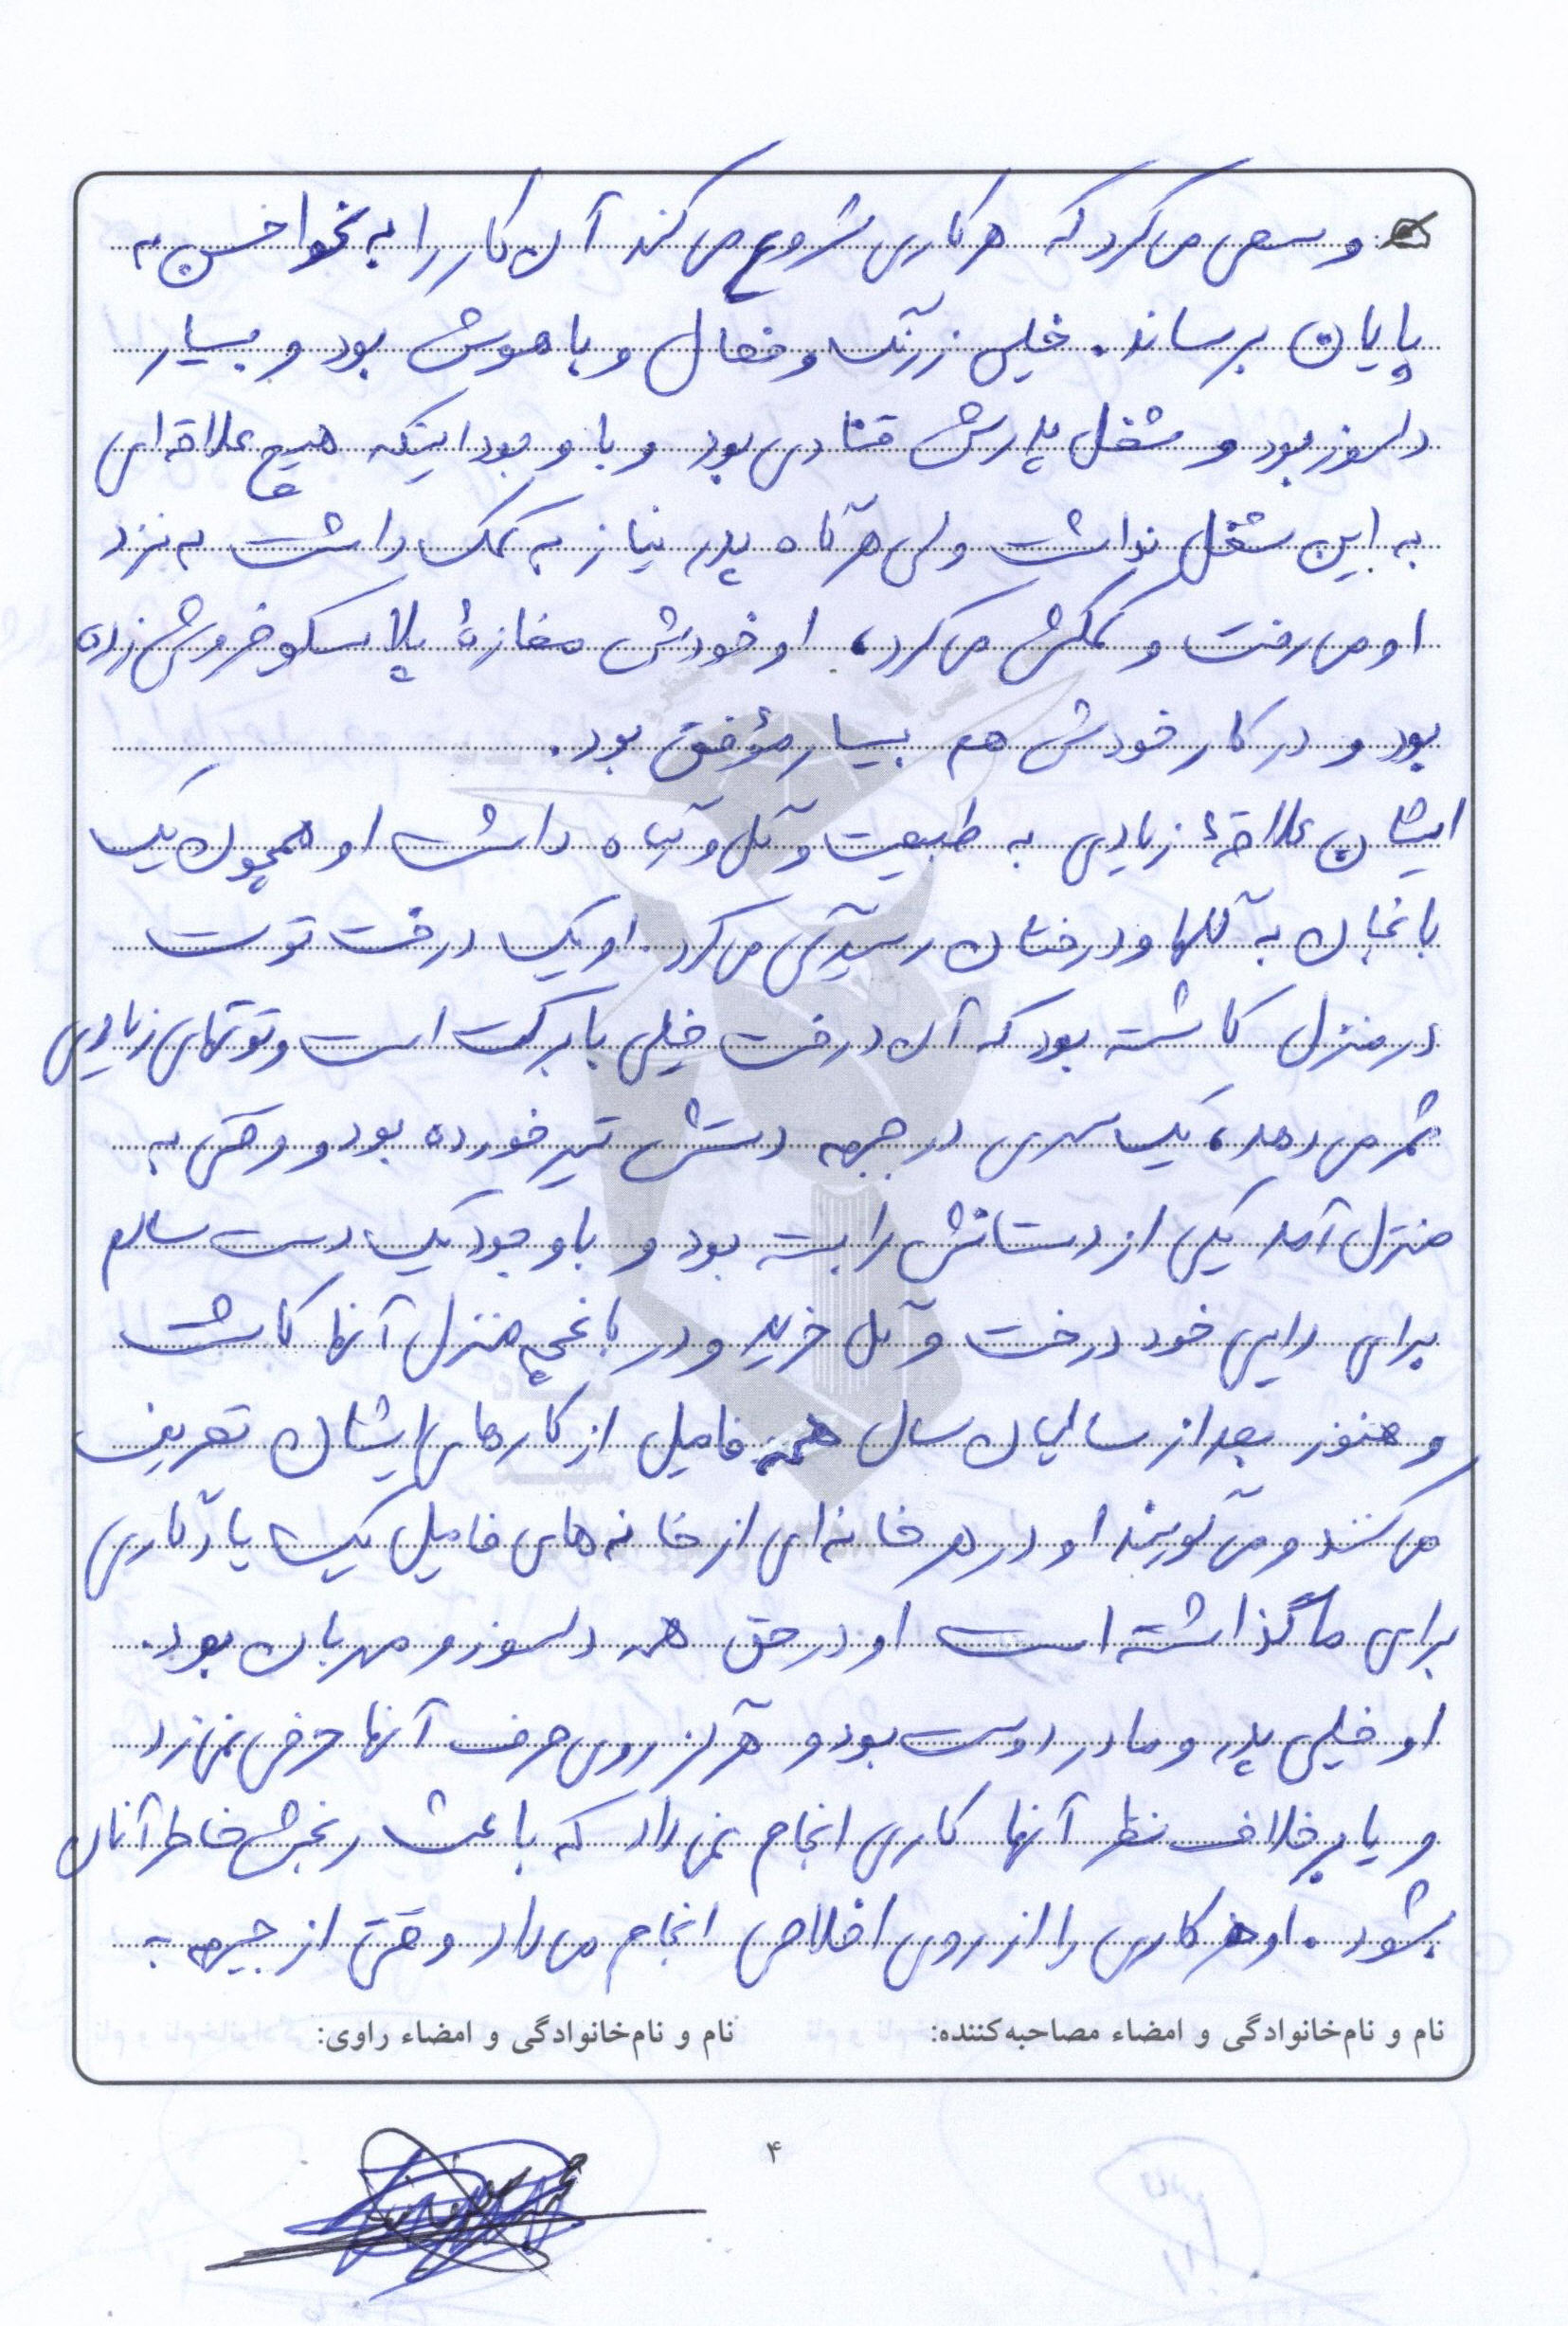 و سعی می‌کرد که هر کاری شروع می‌کند آن کار را به نحو احسن به
پایان برساند. خیلی زرنگ و فعال و باهوش بود و بسیار
دلسوز بود و شغل پدرش قنادی بود و با وجود اینکه هیچ علاقه‌ای
به این شغل نداشت ولی هرگاه پدر نیاز به کمک داشت به نزد
او می‌رفت و کمکش می‌کرد، او خودش مغازهٔ پلاسکو فروشی زده
بود و در کار خودش هم بسیار مؤفق بود.
ایشان علاقهٔ زیادی به طبیعت و گل و گیاه داشت او همچون یک
باغبان به گلها و درختان رسیدگی می‌کرد. او یک درخت توت
در منزل کاشته بود که آن درخت خیلی بابرکت است و توتهای زیادی
ثمر می‌دهد، یک سری در جبهه دستش تیر خورده بود و وقتی به
منزل آمد یکی از دستانش را بسته بود و با وجود یک دست سالم
برای دایی خود درخت و گل خرید و در باغچه منزل آنها کاشت
و هنوز بعد از سالیان سال همه فامیل از کارهای ایشان تعریف
می‌کنند و می‌گویند او در هر خانه‌ای از خانه‌های فامیل یک یادگاری
برای ما گذاشته است او در حق همه دلسوز و مهربان بود.
او خیلی پدر و مادر دوست بود و هرگز روی حرف آنها حرفی نمی‌زد
و یا برخلاف نظر آنها کاری انجام نمی‌داد که باعث رنجش خاطر آنان
بشود. او هر کاری را از روی اخلاص انجام می‌داد وقتی از جبهه به
نام و نام‌خانوادگی و امضاء مصاحبه‌کننده: نام و نام‌خانوادگی و امضاء راوی:
۴